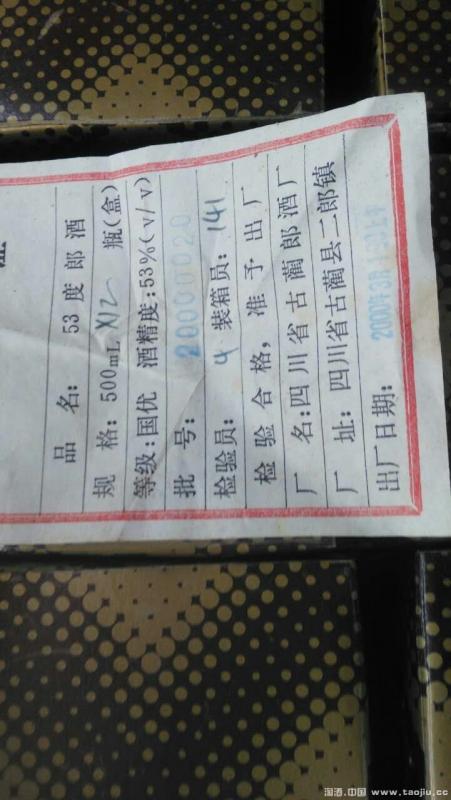 品 名: 53 度 郎 酒
规 格: 500mL X12 瓶(盒)
等级:国优 酒精度:53%(v/v)
批 号: 20000020
检验员: 4 装箱员: 141
检 验 合 格, 准 予 出 厂
厂 名:四 川 省 古 蔺 郎 酒 厂
厂 址: 四川省古蔺县二郎镇
出厂日期: 2000年3月
淘酒.中国 www.taojiu.cc